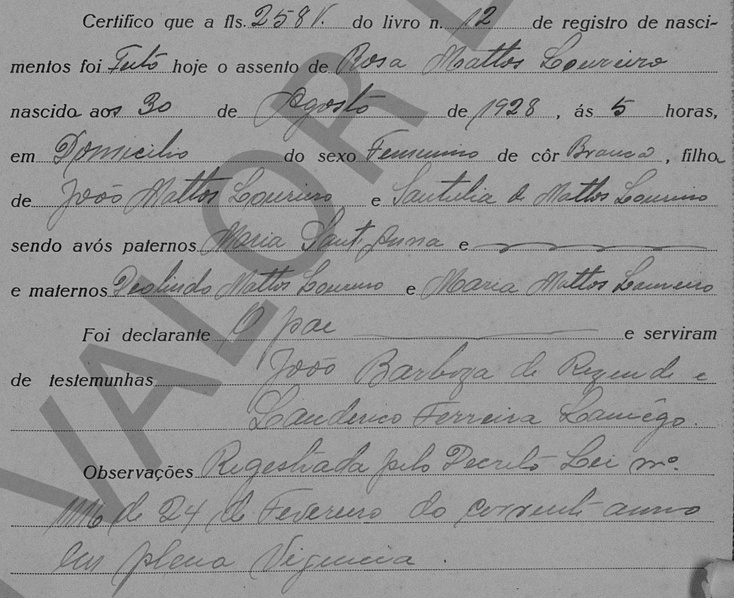 Certifico que a fls. 258V. do livro n. 12 de registro de nasci-
mentos foi Feito hoje o assento de Rosa Mattos Loureiro
nascida aos 30 de Agosto de 1928, ás 5 horas,
em Domicilio do sexo Feminino de côr Branca, filha
de João Mattos Loureiro e de Mattos Loureiro
sendo avós paternos Maria Sant'Anna e
e maternos Deolindo Mattos Loureiro e Maria Mattos Loureiro
Foi declarante O pae e serviram
de testemunhas João Barboza de Rezende e
Ferreira Lamêgo.
Observações Registrada pelo Decreto Lei nº.
1116 de 24 de Fevereiro do corrente anno
em plena Vigencia.
VALOR